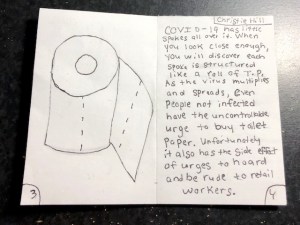 Chrigrie Hill
COVID-19 has little
spokes all over it. When
you look close enough,
you will discover each
spoke is structured
like a roll of T.P.
As the virus multiplies
and spreads, even
people not infected
have the uncontrollable
urge to buy toilet
paper. Unfortunately
it also has the side effect
of urges to hoard
and be rude to retail
workers.
3
4